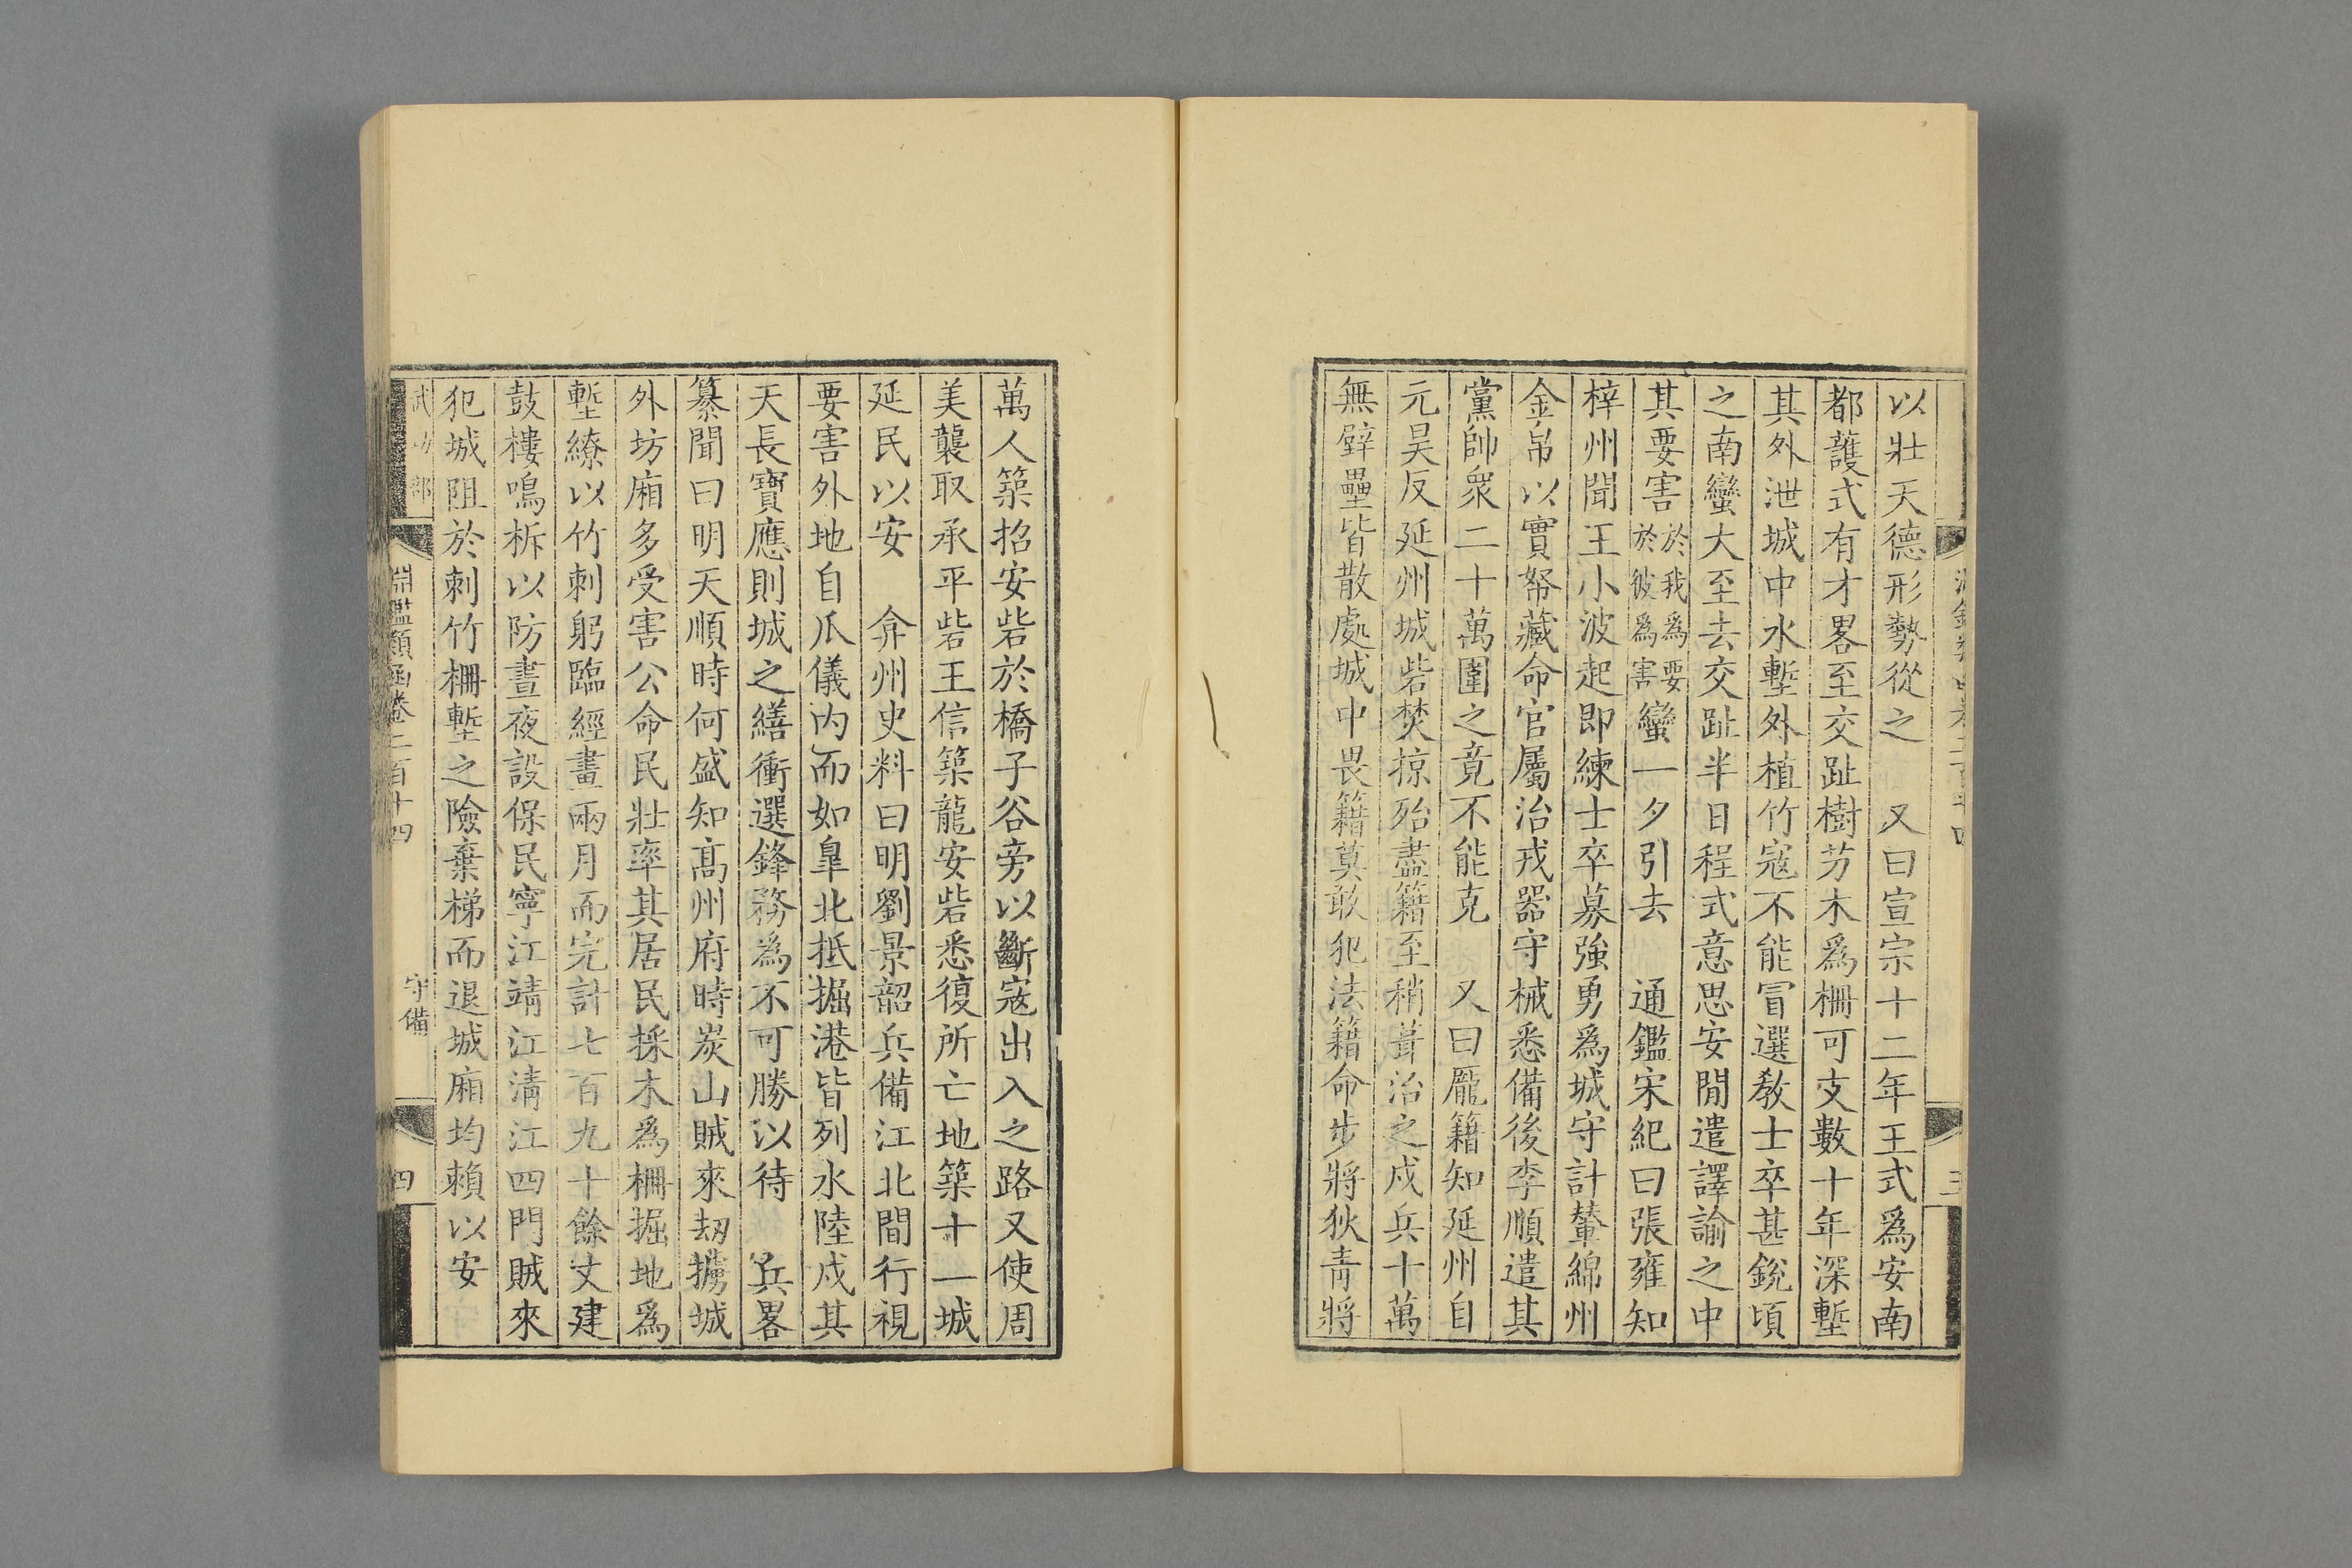 以壯天德形勢從之　又曰宣宗十二年王式爲安南
都護式有才畧至交趾樹芀木爲柵可支數十年深塹
其外泄城中水塹外植竹寇不能冒選敎士卒甚銳頃
之南蠻大至去交趾半日程式意思安閒遣譯諭之中
其要害於我爲要於彼爲害蠻一夕引去　通鑑宋紀曰張雍知
梓州聞王小波起即練士卒募強勇爲城守計輦綿州
金帛以實帑藏命官屬治戎器守械悉備後李順遣其
黨帥衆二十萬圍之竟不能克　又曰龐籍知延州自
元昊反延州城砦焚掠殆盡籍至稍葺治之戍兵十萬
無壁壘皆散處城中畏籍莫敢犯法籍命步將狄青將
萬人築招安砦於橋子谷旁以斷寇出入之路又使周
美襲取承平砦王信築龍安砦悉復所亡地築十一城
延民以安　弇州史料曰明劉景韶兵備江北間行視
要害外地自瓜儀內而如臯北抵掘港皆列水陸戍其
天長寶應則城之繕衝選鋒務爲不可勝以待　兵畧
纂聞曰明天順時何盛知高州府時炭山賊來刼擄城
外坊廂多受害公命民壯率其居民採木爲柵掘地爲
塹繚以竹刺躬臨經畫兩月而完計七百九十餘丈建
鼓樓鳴柝以防晝夜設保民寧江靖江清江四門賊來
犯城阻於刺竹柵塹之險棄梯而退城廂均賴以安
武功部　淵鑑類函卷二百十四　守備　四